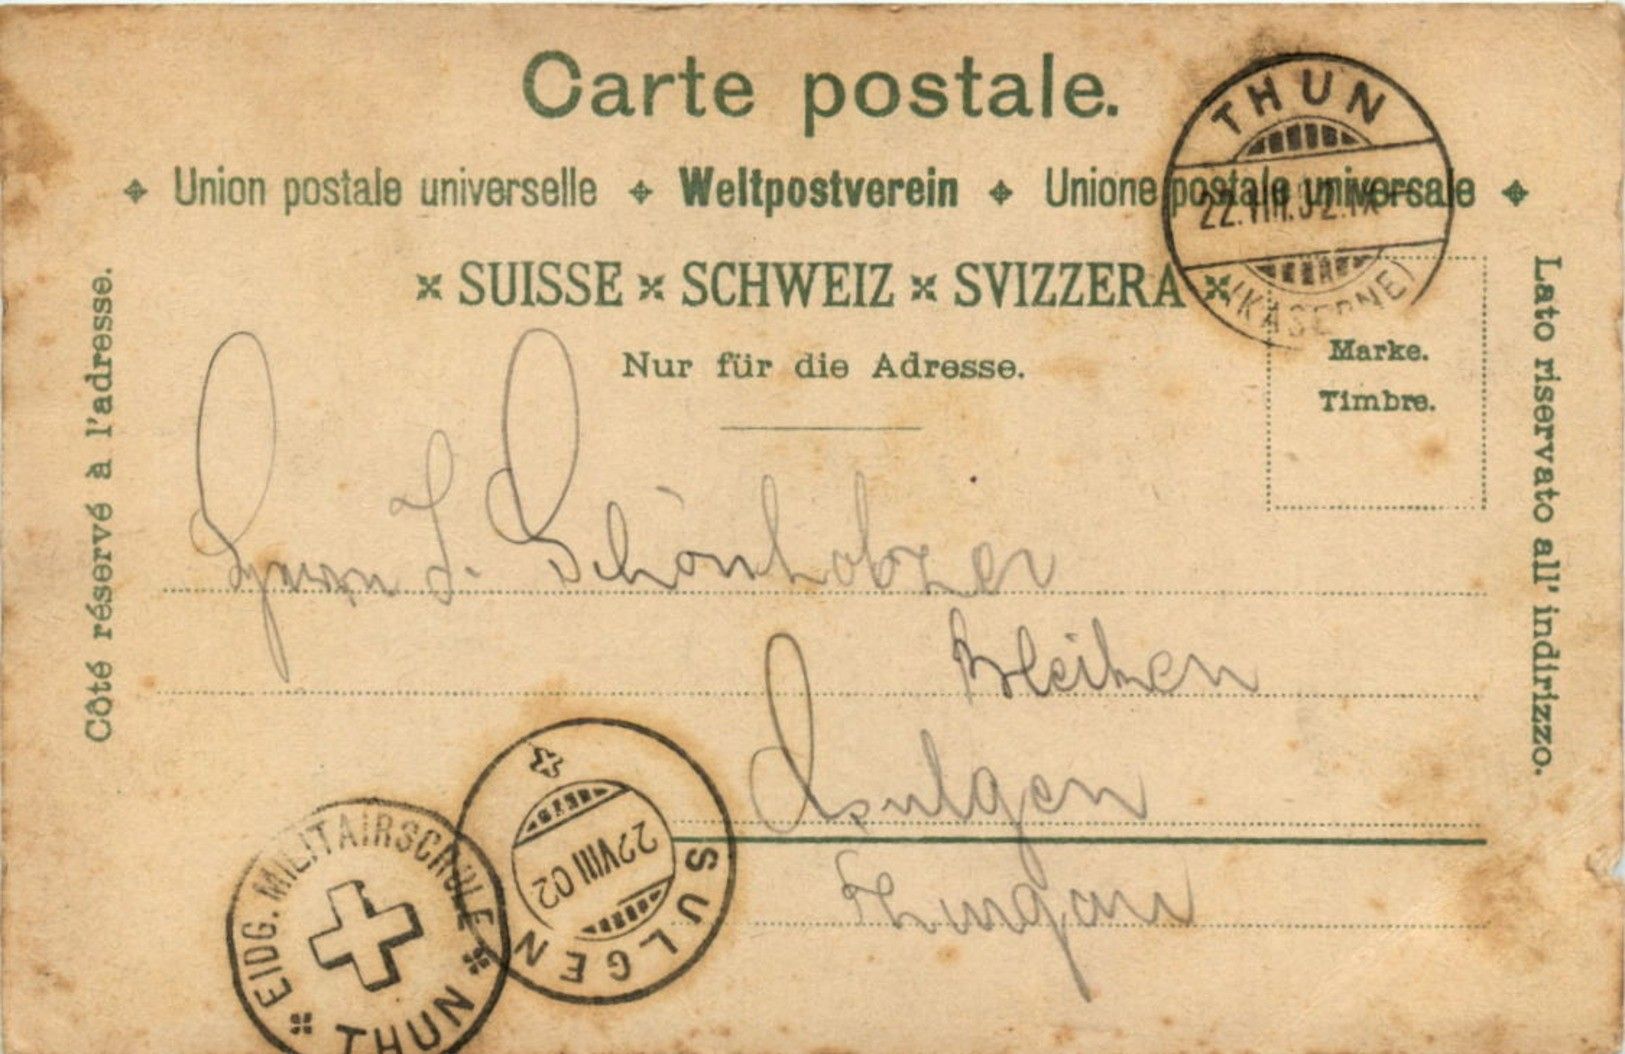 Carte postale.
Union postale universelle Weltpostverein Unione postale universale
SUISSE SCHWEIZ SVIZZERA
Nur für die Adresse.
Côté réservé à l'adresse.
Lato riservato all' indirizzo.
THUN
22.VIII.02.IX
(KASERNE)
Marke.
Timbre.
Herrn J. Schönholzer
Bleiken
Sulgen
Thurgau
SULGEN
22 VIII 02
EIDG. MILITAIRSCHULE
THUN